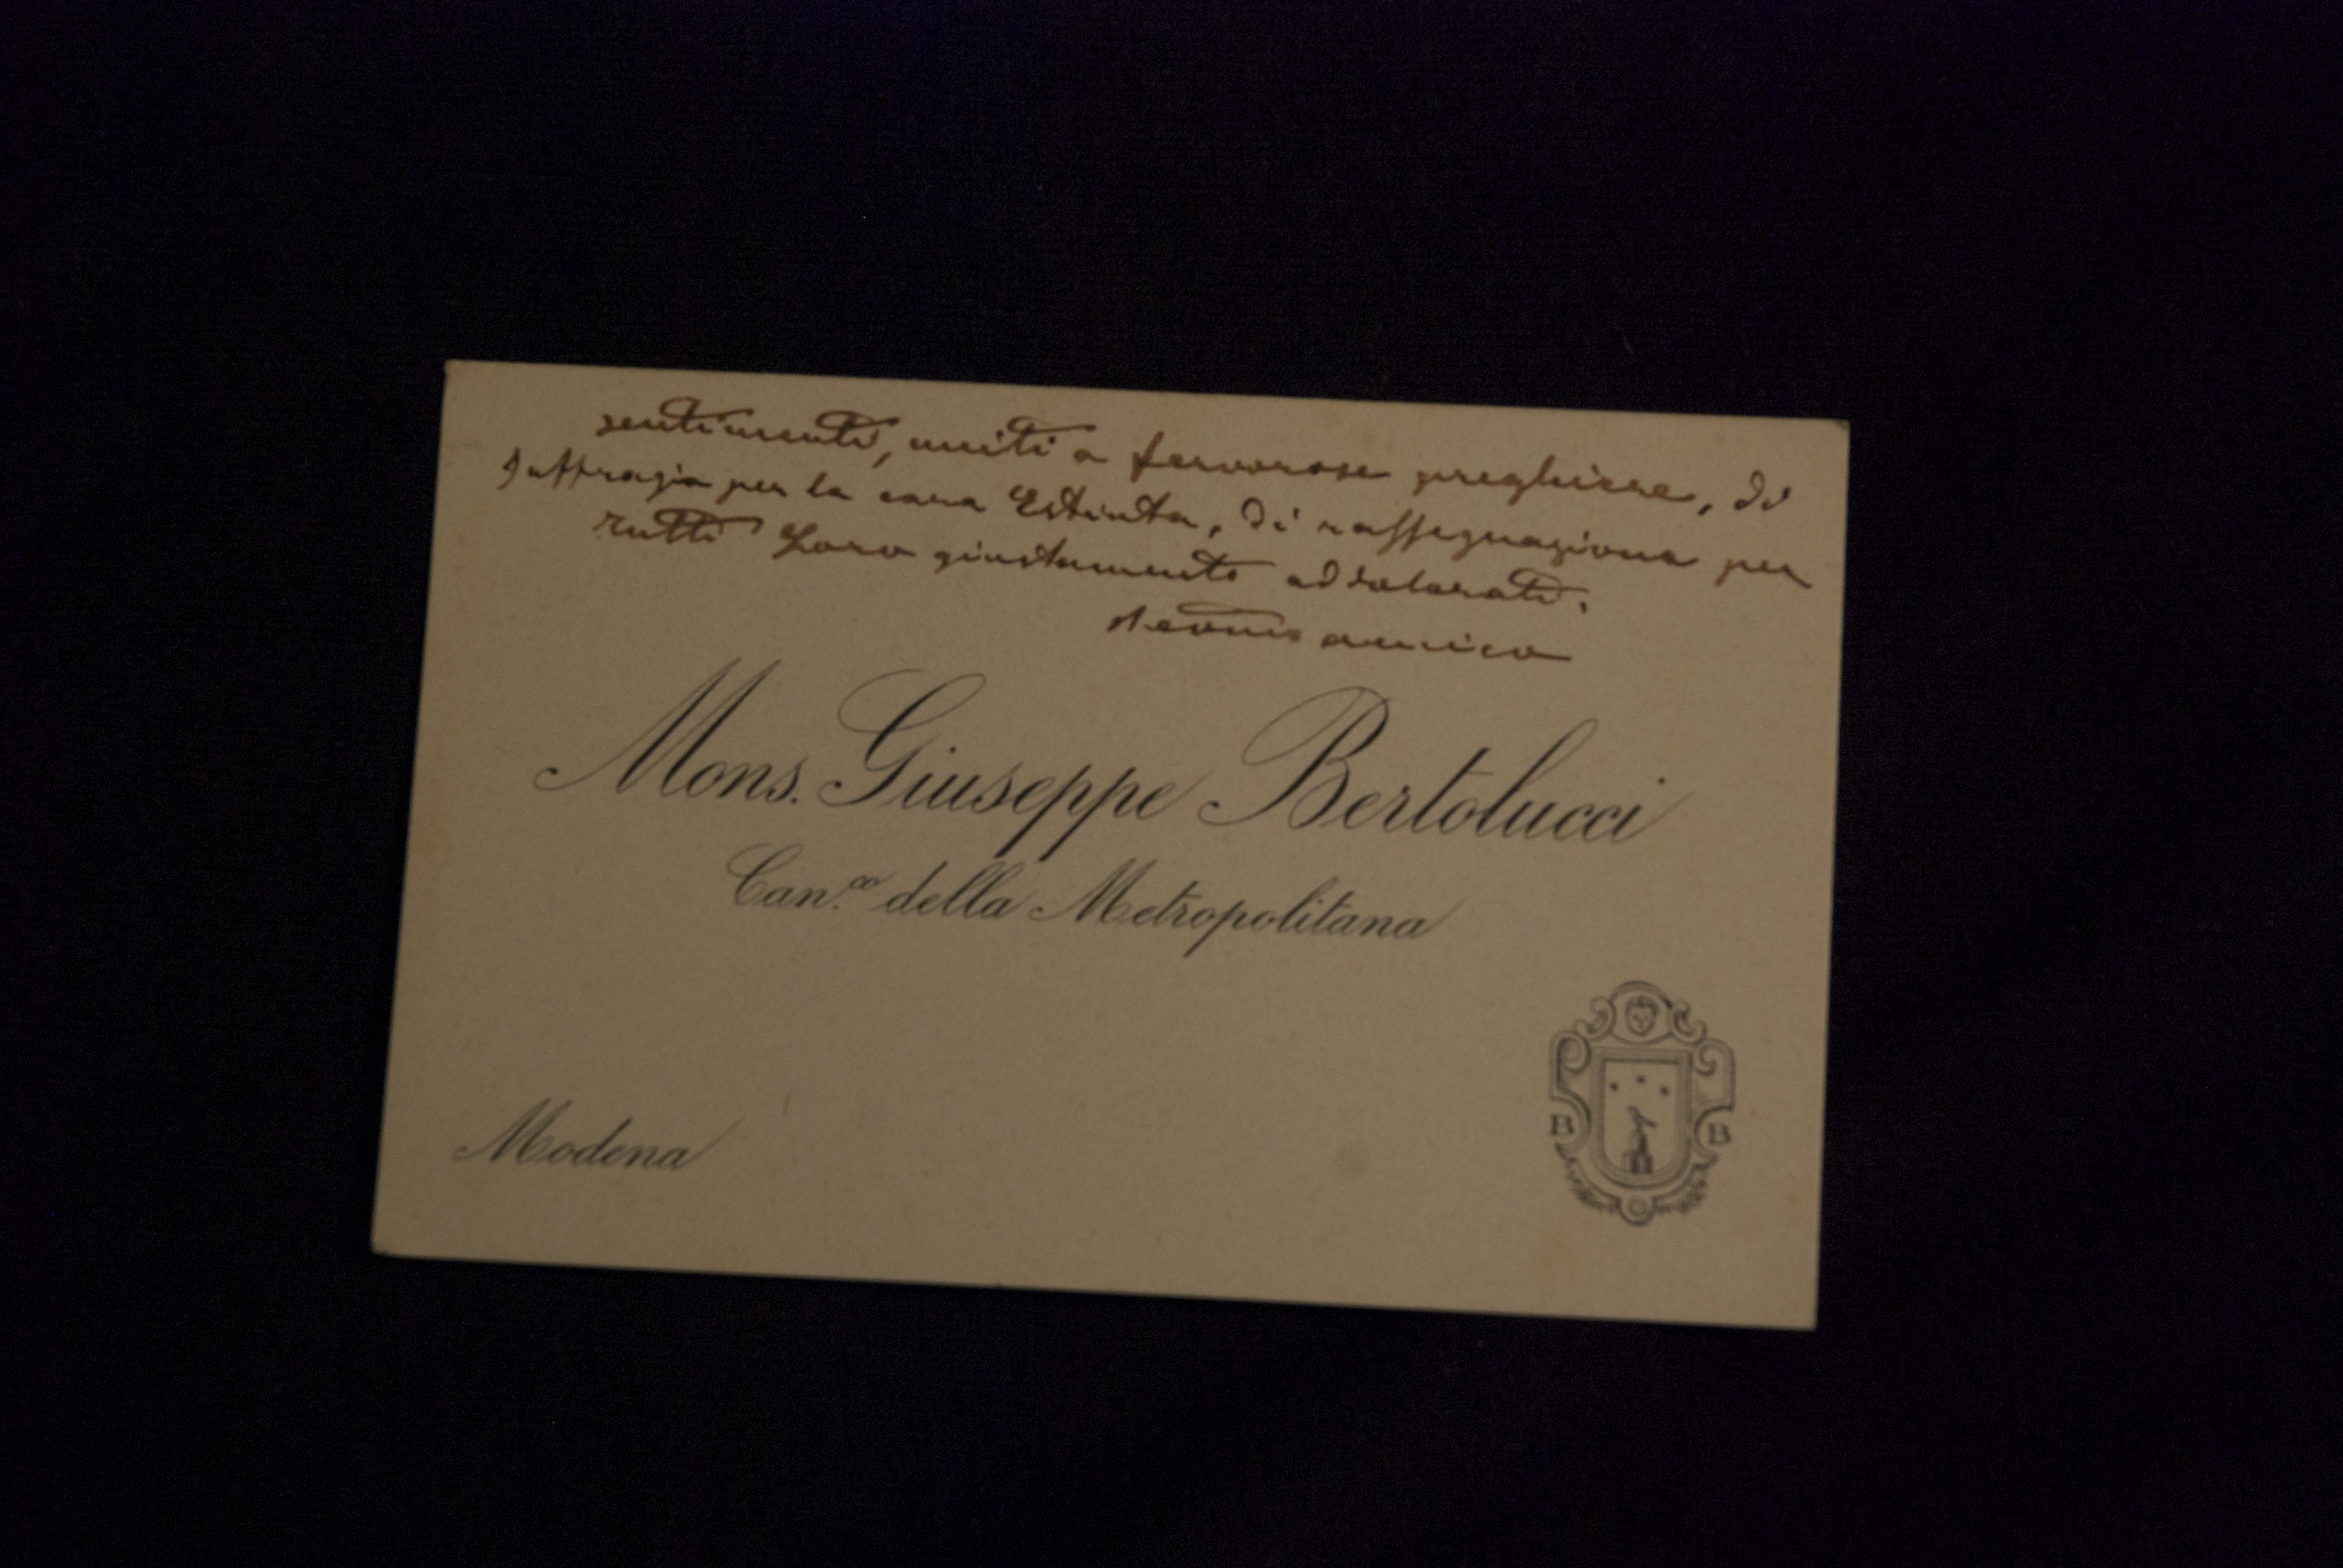 sentimenti, uniti a fervorose preghiere, di
suffragio per la cara Estinta, di rassegnazione per
tutti Loro giustamente addolorati.
amico
Mons. Giuseppe Bertolucci
Can.co della Metropolitana
B B
Modena